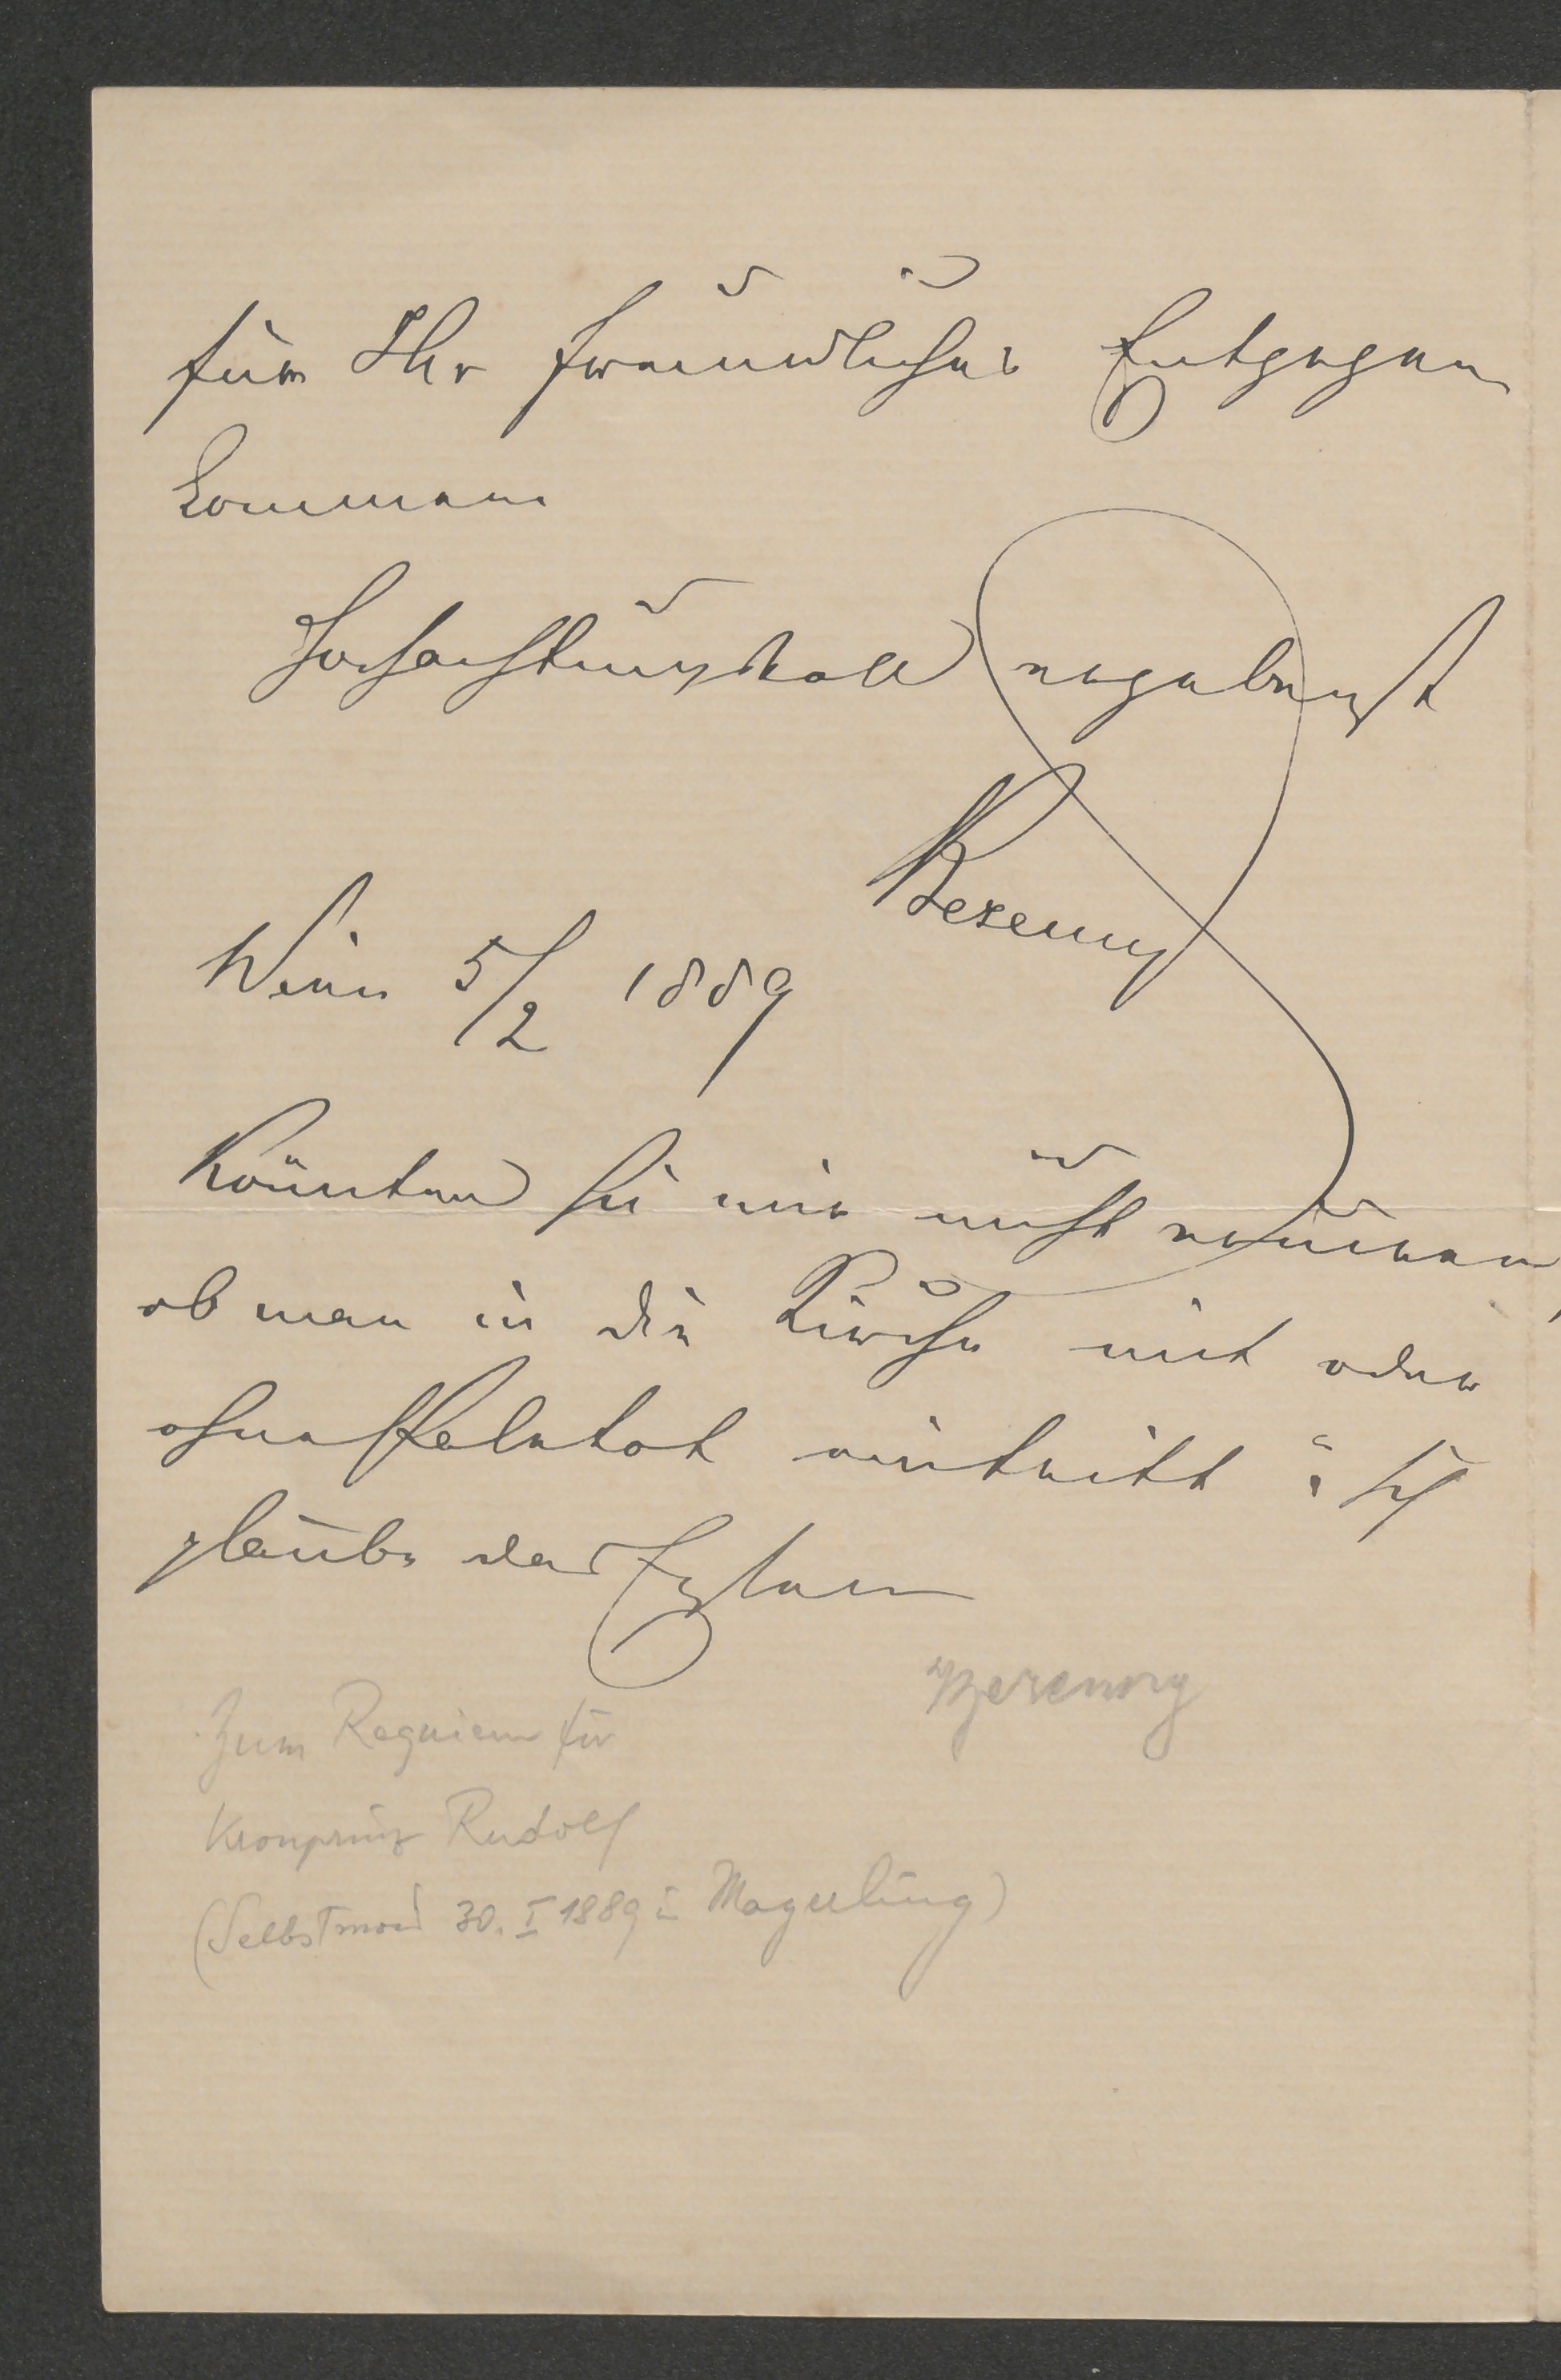 für Ihr freundliches Entgegen
kommen
Hochachtungsvoll ergebenst
Bezecny
Wien 5/2 1889
Könnten Sie mir nicht eruiren,
ob man in die Kirche mit oder
ohne Paletot eintritt? Ich
glaube das Erstere
Bezecny
Zum Requiem für
Kronprinz Rudolf
(Selbstmord 30. I 1889 in Mayerling)